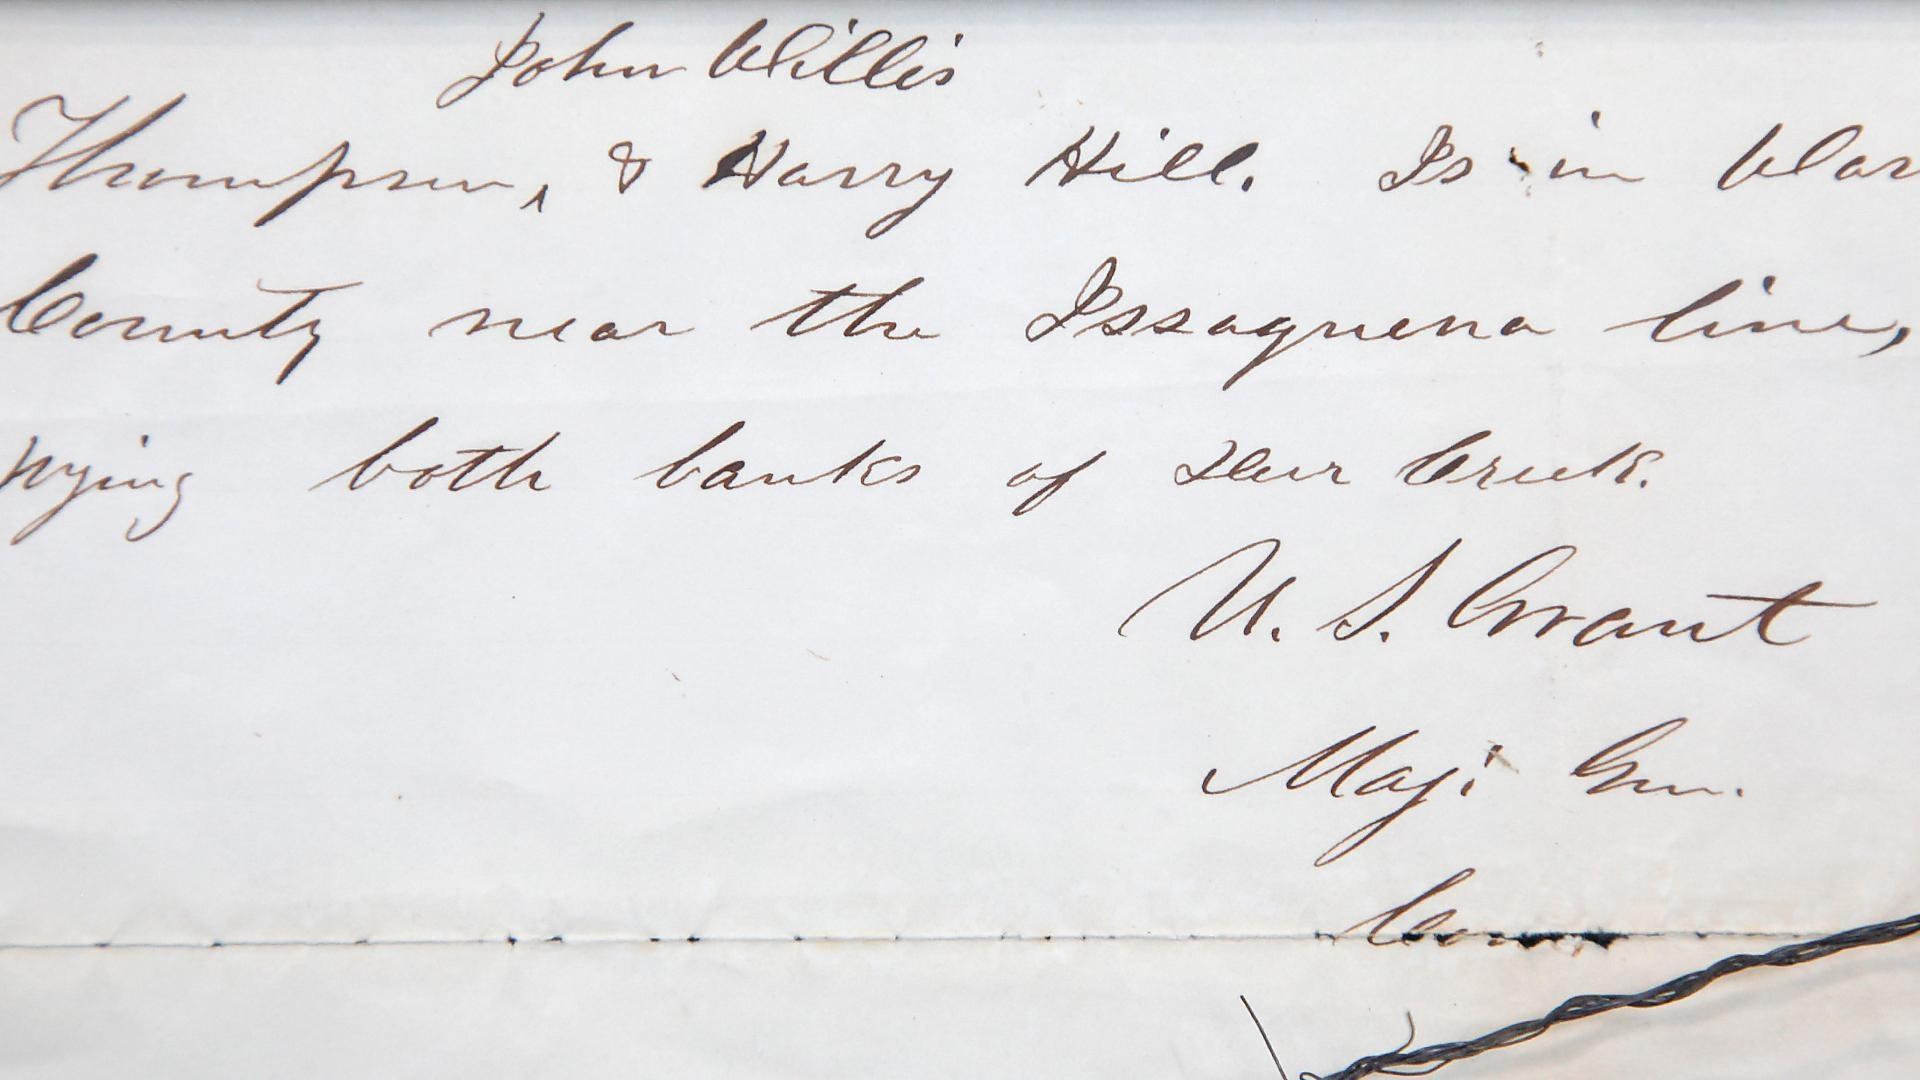 John Willis
Thompson, & Harry Hill. Is in War
County near the Issaquena line,
pying both banks of Deer Creek.
U. S. Grant
Maj. Gen.
Com